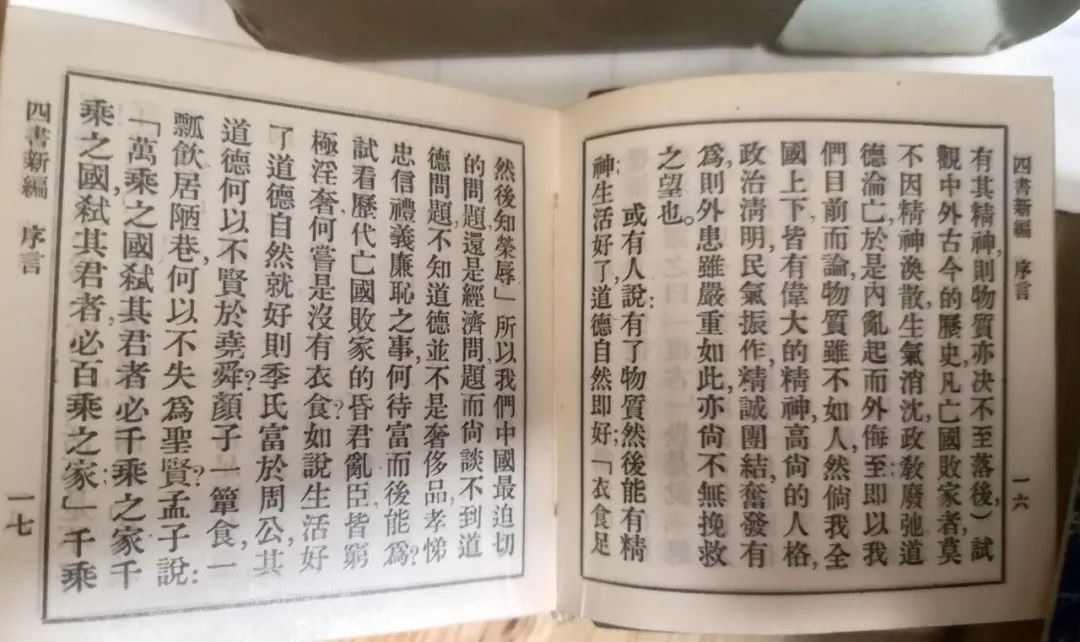 四書新編 序言
一六
有其精神,則物質亦決不至落後,)試
觀中外古今的歷史,凡亡國敗家者,莫
不因精神渙散,生氣消沈,政教廢弛,道
德淪亡,於是內亂起而外侮至;即以我
們目前而論,物質雖不如人,然倘我全
國上下,皆有偉大的精神,高尚的人格,
政治清明,民氣振作,精誠團結,奮發有
爲,則外患雖嚴重如此,亦尙不無挽救
之望也。
或有人說:有了物質,然後能有精
神;生活好了,道德自然即好;「衣食足
然後知榮辱」所以我們中國最迫切
的問題,還是經濟問題,而尙談不到道
德問題,不知道德並不是奢侈品,孝悌
忠信禮義廉恥之事,何待富而後能爲?
試看歷代亡國敗家的昏君亂臣,皆窮
極淫奢,何嘗是沒有衣食?如說生活好
了,道德自然就好,則季氏富於周公,其
道德何以不賢於堯舜?顏子一簞食,一
瓢飲,居陋巷,何以不失爲聖賢?孟子說:
「萬乘之國,弒其君者,必千乘之家,千
乘之國,弒其君者,必百乘之家;」千乘
四書新編 序言
一七